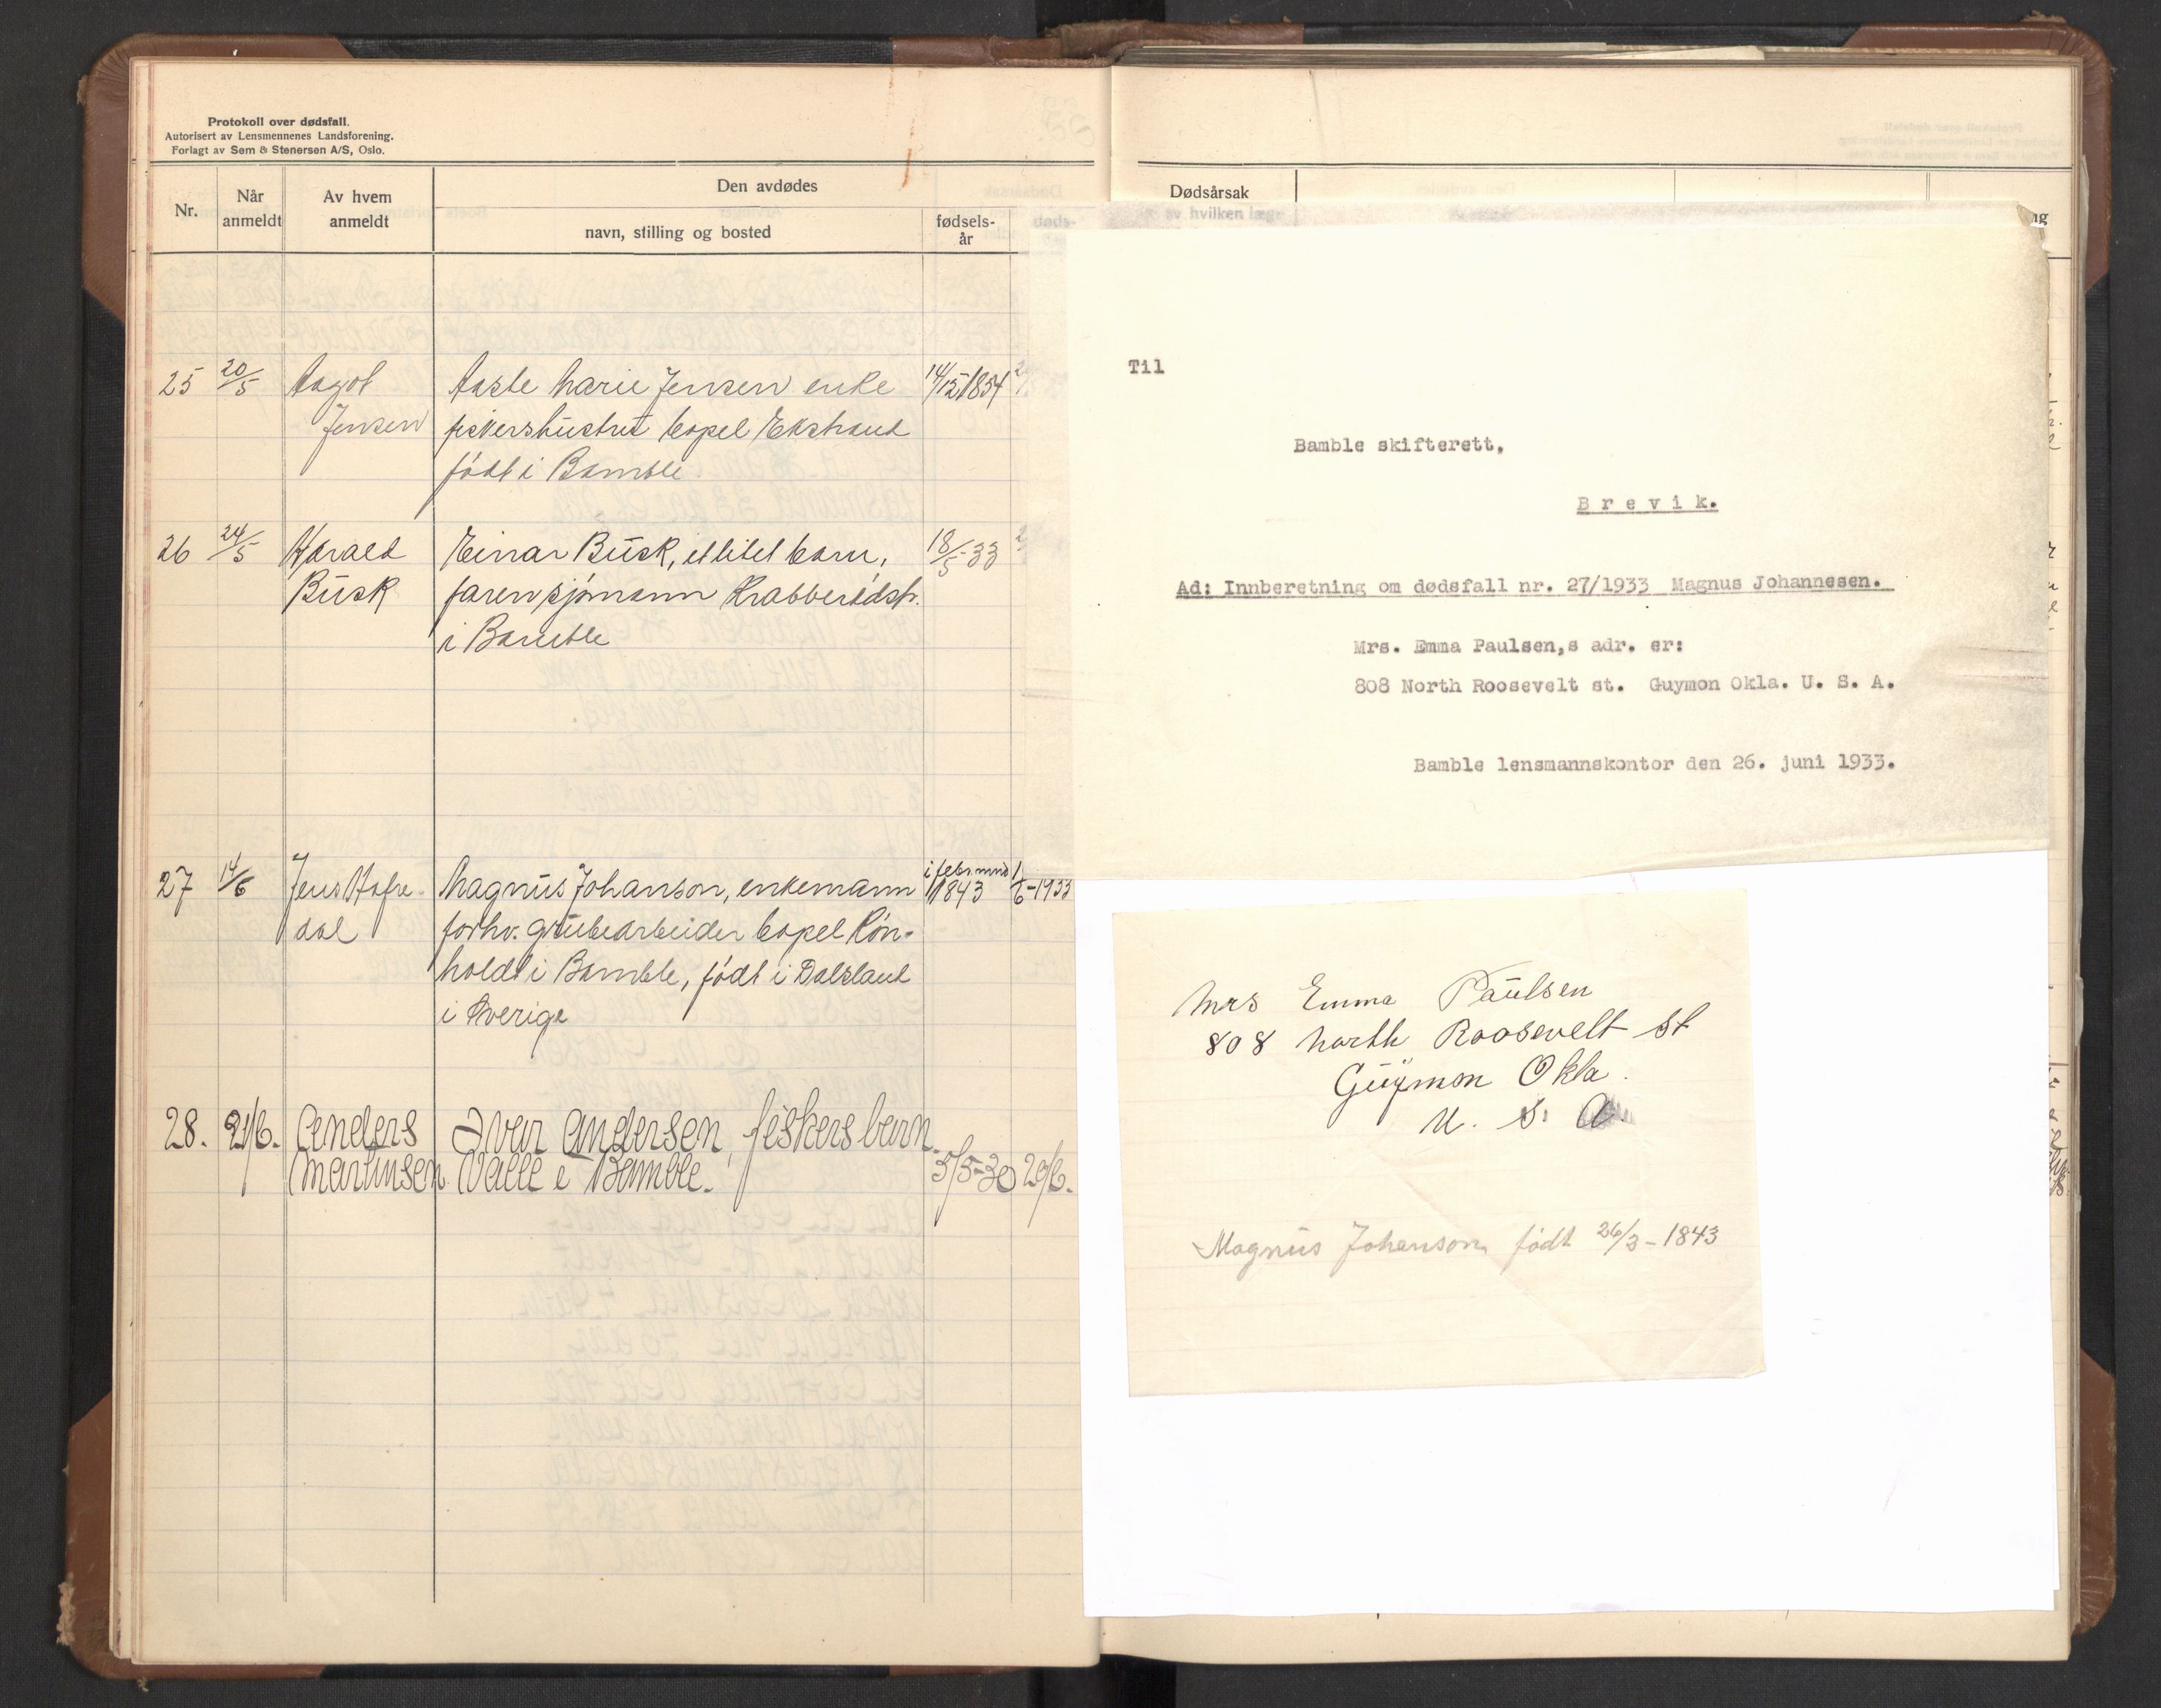 Protokoll over dødsfall.
Autorisert av Lensmennenes Landsforening.
Forlagt av Sem & Stenersen A/S, Oslo.
Nr.
Når
anmeldt
Av hvem
anmeldt
Den avdødes
navn, stilling og bosted
fødsels-
år
døds-
25 20/5 Aagot
Jensen
Aaste Marie Jensen enke
fiskershustru bopel Ekstrand
født i Bamble
14/12 1854
26 24/5 Harald
Busk
Einar Busk, et litet barn,
faren sjømann Krabberødstr.
i Bamble
18/5-33
27 14/6 Jens Hafre-
dal
Magnus Johanson, enkemann
forhv. grubearbeider bopel Røn-
holdt i Bamble, født i Dalsland
i Sverige
i febr. mnd
1843
1/6-1933
28. 21/6. Anders
Martinsen
Ivar Andersen, fiskers barn.
Valle i Bamble.
5/5-30 20/6.
Dødsårsak
av hvilken læge
Til
Bamble skifterett,
Brevik.
Ad: Innberetning om dødsfall nr. 27/1933 Magnus Johannesen.
Mrs. Emma Paulsen,s adr. er:
808 North Roosevelt st. Guymon Okla. U. S. A.
Bamble lensmannskontor den 26. juni 1933.
Mrs Emma Paulsen
808 North Roosevelt St
Guymon Okla.
U. S. A.
Magnus Johanson født 26/3-1843